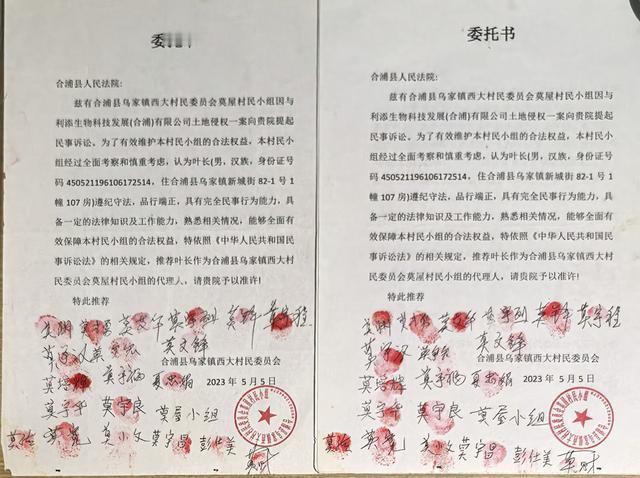 委
合浦县人民法院:
兹有合浦县乌家镇西大村民委员会莫屋村民小组因与
利添生物科技发展(合浦)有限公司土地侵权一案向贵院提起
民事诉讼。为了有效维护本村民小组的合法权益，本村民小
组经过全面考察和慎重考虑，认为叶长(男，汉族，身份证号
码 450521196106172514，住合浦县乌家镇新城街 82-1 号 1
幢 107 房)遵纪守法，品行端正，具有完全民事行为能力，具
备一定的法律知识及工作能力，熟悉相关情况，能够全面有
效保障本村民小组的合法权益，特依照《中华人民共和国民
事诉讼法》的相关规定，推荐叶长作为合浦县乌家镇西大村
民委员会莫屋村民小组的代理人，请贵院予以准许!
特此推荐
莫文锋
合浦县乌家镇西大村民委员会
2023 年 5 月 5 日
莫宇良 莫屋小组
莫宇昌 彭仕美
委托书
合浦县人民法院:
兹有合浦县乌家镇西大村民委员会莫屋村民小组因与
利添生物科技发展(合浦)有限公司土地侵权一案向贵院提起
民事诉讼。为了有效维护本村民小组的合法权益，本村民小
组经过全面考察和慎重考虑，认为叶长(男，汉族，身份证号
码 450521196106172514，住合浦县乌家镇新城街 82-1 号 1
幢 107 房)遵纪守法，品行端正，具有完全民事行为能力，
具备一定的法律知识及工作能力，熟悉相关情况，能够全面
有效保障本村民小组的合法权益，特依照《中华人民共和国民
事诉讼法》的相关规定，推荐叶长作为合浦县乌家镇西大村
民委员会莫屋村民小组的代理人，请贵院予以准许!
特此推荐
莫文锋
合浦县乌家镇西大村民委员会
2023 年 5 月 5 日
莫宇良 莫屋小组
莫宇昌 彭仕美